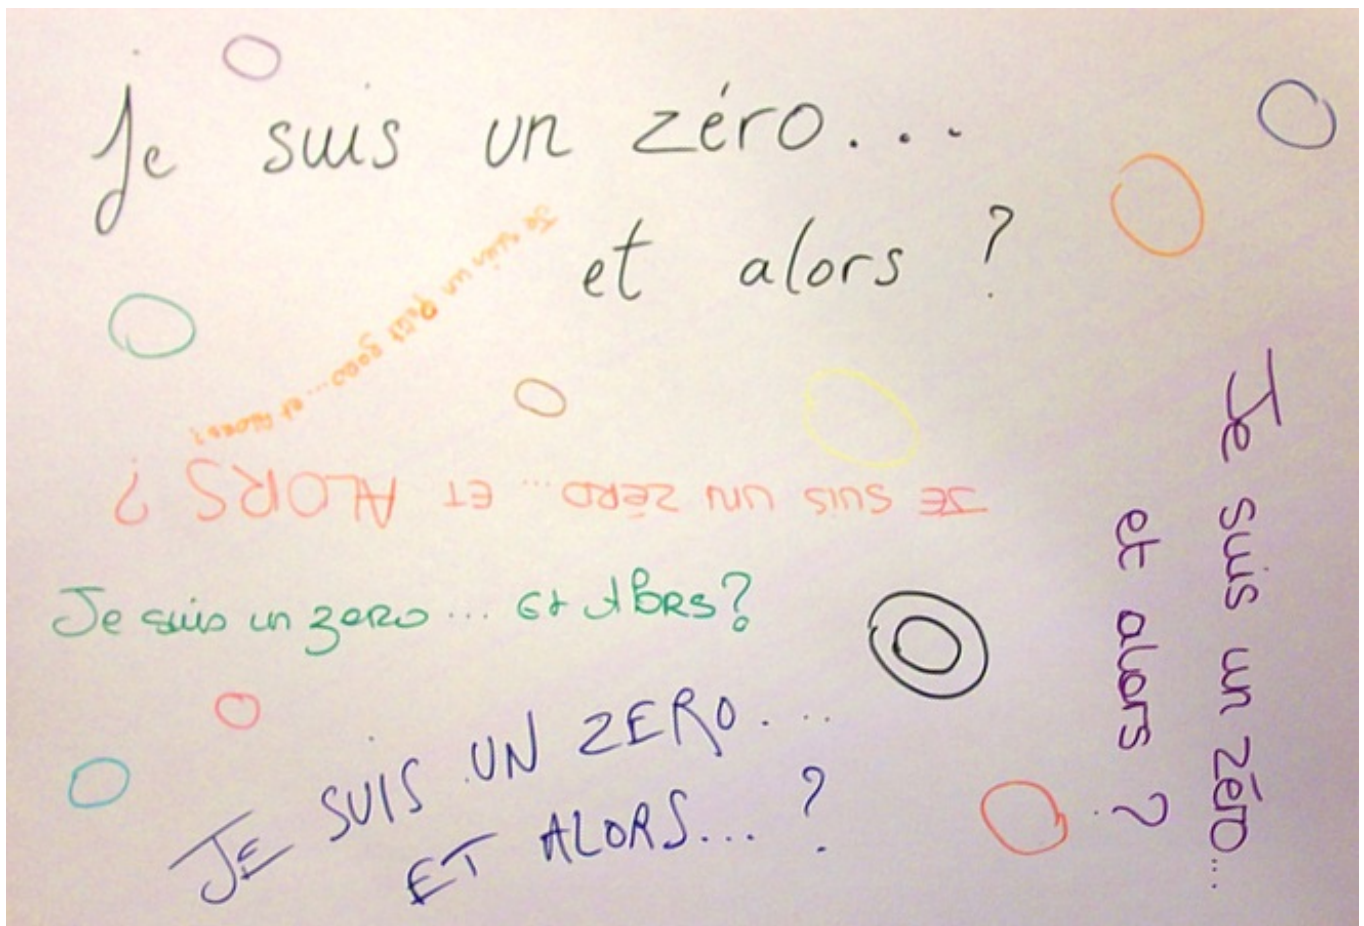 Je suis un zéro...
et alors ?
Je suis un Petit ... et ALORS ?
JE SUIS UN ZéRO... ET ALORS ?
Je suis un zero... Et AloRs ?
JE SUIS UN ZERO...
ET ALORS... ?
Je suis un zéro...
et alors ?